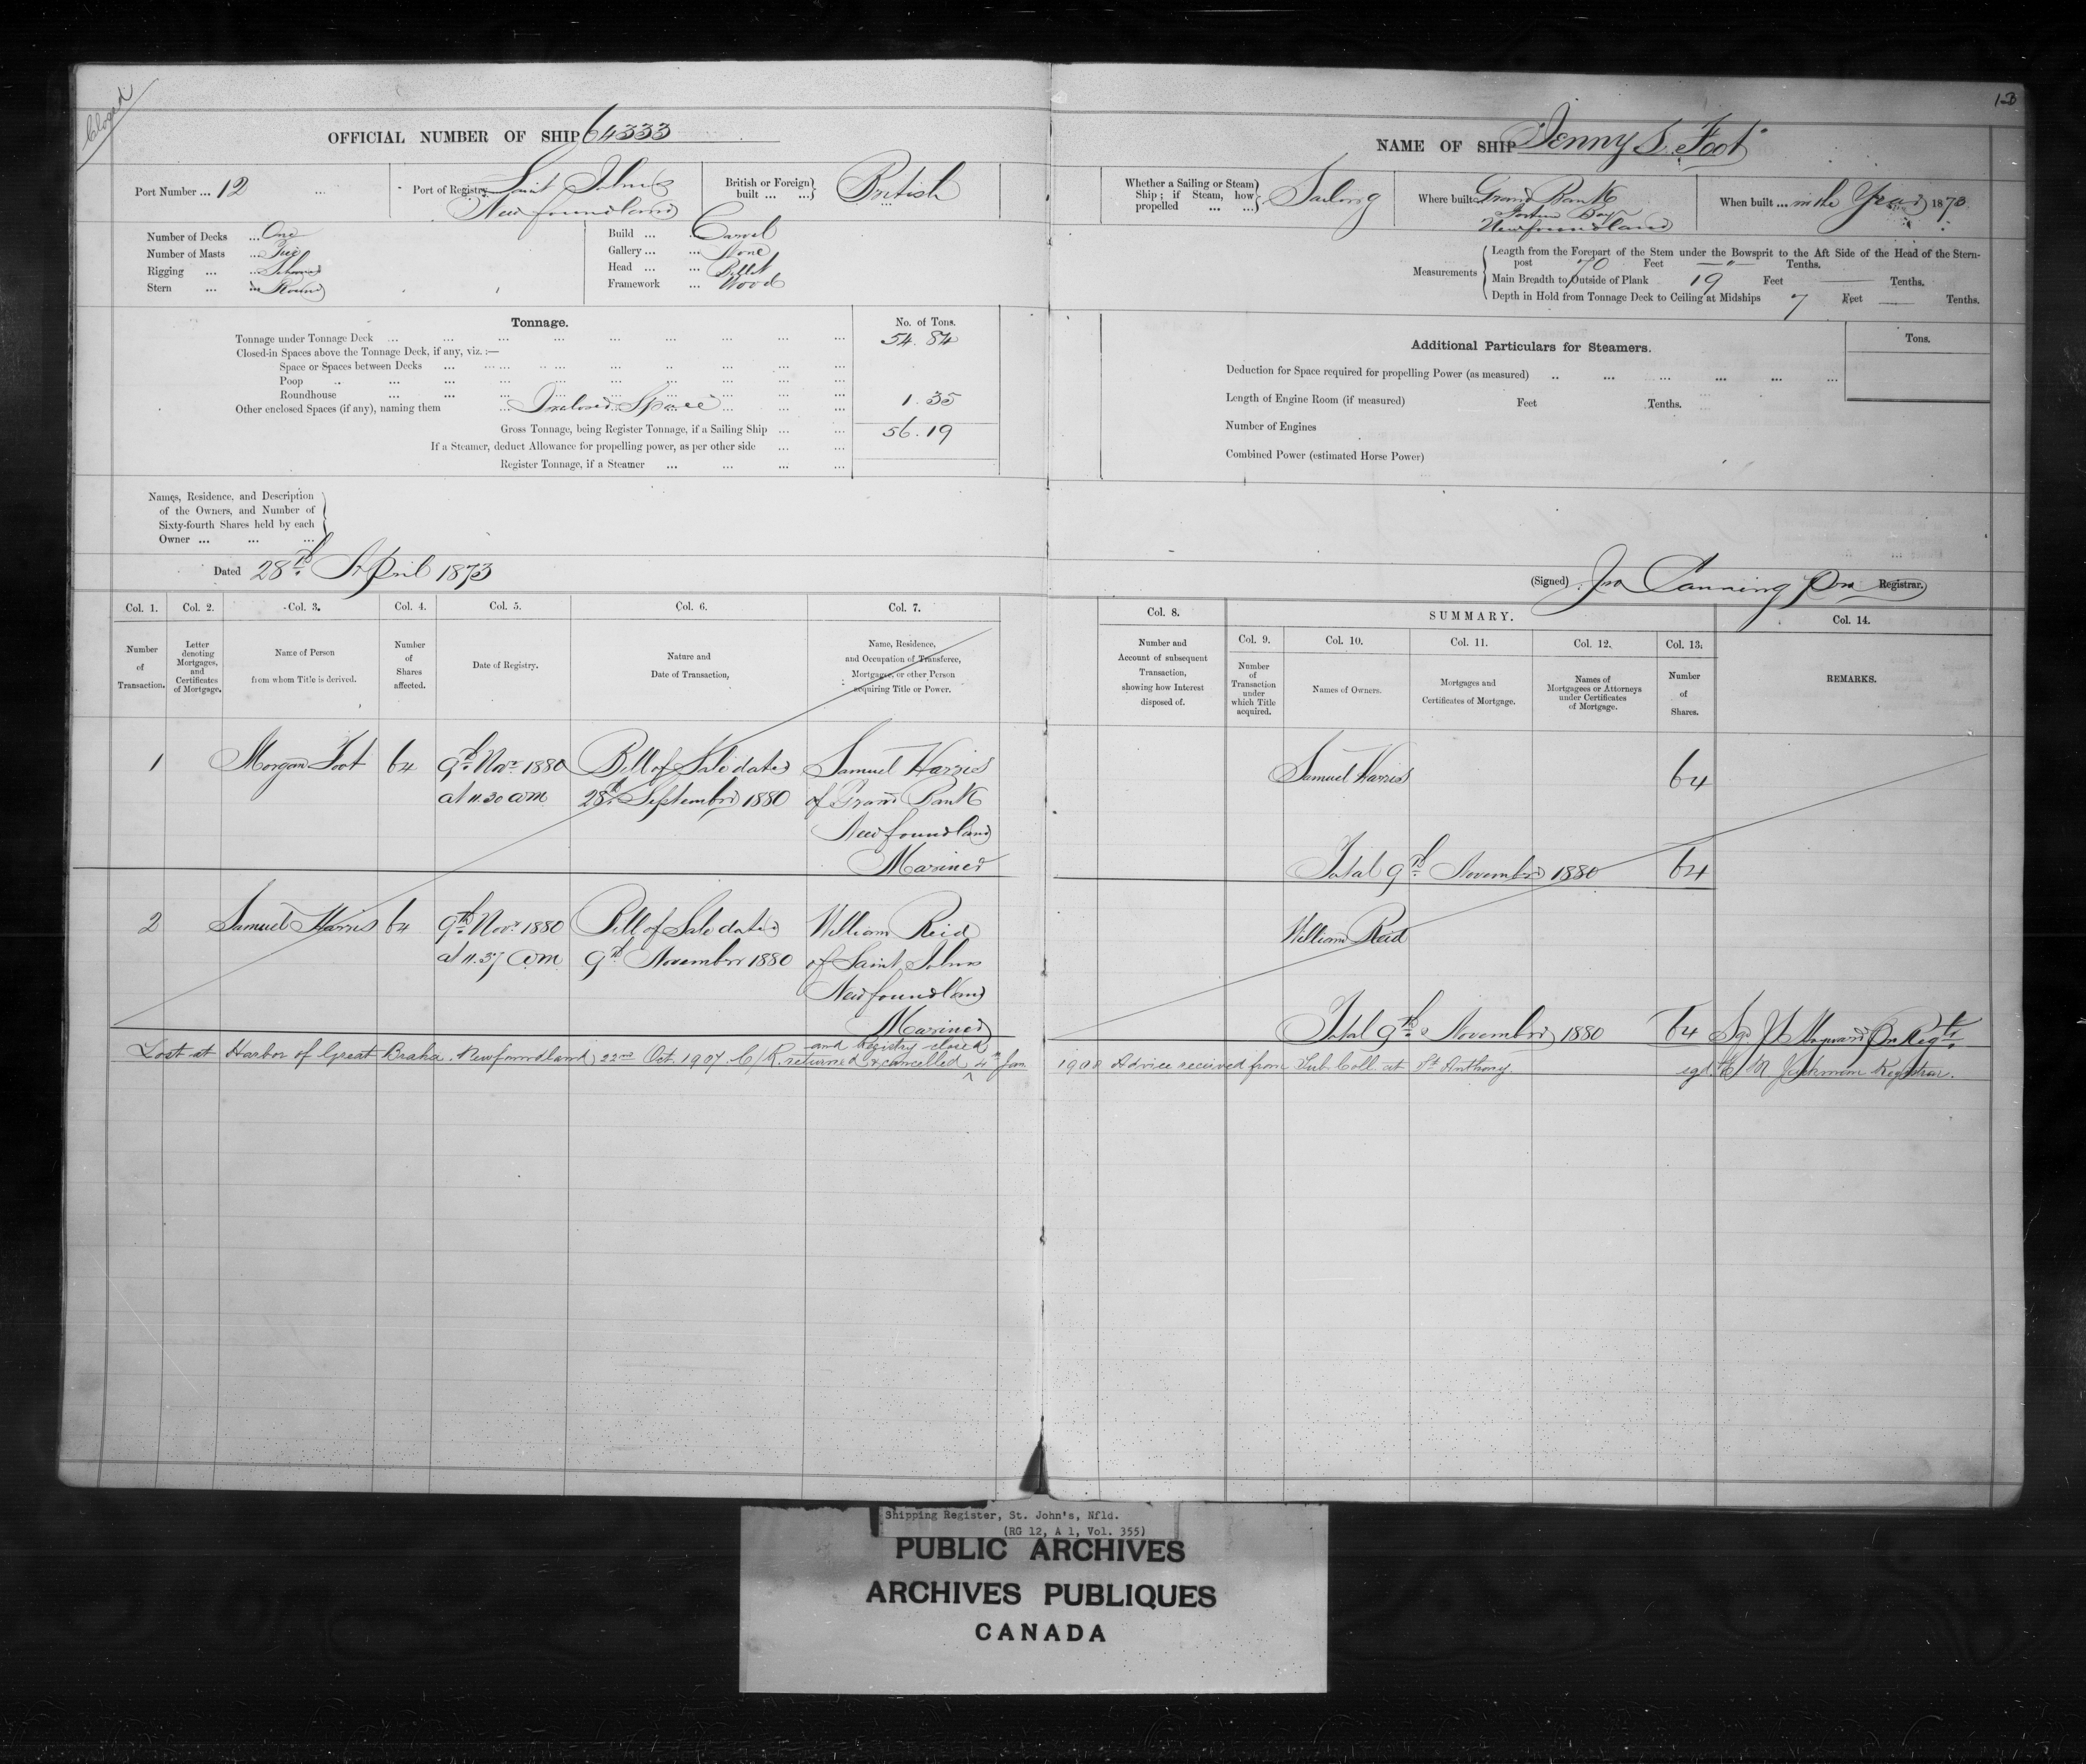 Closed
1-3
OFFICIAL NUMBER OF SHIP 64333
NAME OF SHIP Jenny S. Foot
Port Number ... 12 ...
Port of Registry Saint Johns
Newfoundland
British or Foreign built ... ... British
Whether a Sailing or Steam Ship; if Steam, how propelled ... ... Sailing
Where built Grand Bank
Fortune Bay
Newfoundland
When built ... in the Year 1873.
Number of Decks ... One
Number of Masts ... Two
Rigging ... ... Schooner
Stern ... ... Round
Build ... ... Carvel
Gallery ... ... None
Head ... ... Billet
Framework ... Wood
Measurements
Length from the Forepart of the Stem under the Bowsprit to the Aft Side of the Head of the Stern-
post 70 Feet — " — Tenths.
Main Breadth to Outside of Plank 19 Feet — Tenths.
Depth in Hold from Tonnage Deck to Ceiling at Midships 7 Feet — Tenths.
Tonnage.
No. of Tons.
Tonnage under Tonnage Deck ... 54.84
Closed-in Spaces above the Tonnage Deck, if any, viz. :—
Space or Spaces between Decks ...
Poop ...
Roundhouse ...
Other enclosed Spaces (if any), naming them ... Inclosed Space ... 1.35
Gross Tonnage, being Register Tonnage, if a Sailing Ship ... 56.19
If a Steamer, deduct Allowance for propelling power, as per other side ...
Register Tonnage, if a Steamer ...
Additional Particulars for Steamers.
Tons.
Deduction for Space required for propelling Power (as measured) ...
Length of Engine Room (if measured) Feet Tenths.
Number of Engines
Combined Power (estimated Horse Power)
Names, Residence, and Description
of the Owners, and Number of
Sixty-fourth Shares held by each
Owner ... ... ...
Dated 28th April 1873
(Signed) Jno Canning Pro Registrar.
Col. 1.
Number of Transaction.
Col. 2.
Letter denoting Mortgages, and Certificates of Mortgage.
Col. 3.
Name of Person from whom Title is derived.
Col. 4.
Number of Shares affected.
Col. 5.
Date of Registry.
Col. 6.
Nature and Date of Transaction,
Col. 7.
Name, Residence, and Occupation of Transferee, Mortgagee, or other Person acquiring Title or Power.
Col. 8.
Number and Account of subsequent Transaction, showing how Interest disposed of.
SUMMARY.
Col. 9.
Number of Transaction under which Title acquired.
Col. 10.
Names of Owners.
Col. 11.
Mortgages and Certificates of Mortgage.
Col. 12.
Names of Mortgagees or Attorneys under Certificates of Mortgage.
Col. 13.
Number of Shares.
Col. 14.
REMARKS.
1 Morgan Foot 64 9th Novr 1880 Bill of Sale dated Samuel Harris
at 11.30 am 28th September 1880 of Grand Bank
Newfoundland
Mariner
Samuel Harris 64
Total 9th November 1880 64
2 Samuel Harris 64 9th Novr 1880 Bill of Sale dated William Reid
at 11.37 am 9th November 1880 of Saint Johns
Newfoundland
Mariner
William Reid
Total 9th November 1880 64
and Registry closed
Lost at Harbor of Great Braha. Newfoundland, 22nd Oct. 1907. C/R. returned & cancelled 4th Jan. 1908 Advice received from Sub. Coll. at St Anthony. Registrar.
Shipping Register, St. John's, Nfld.
(RG 12, A 1, Vol. 355)
PUBLIC ARCHIVES
ARCHIVES PUBLIQUES
CANADA